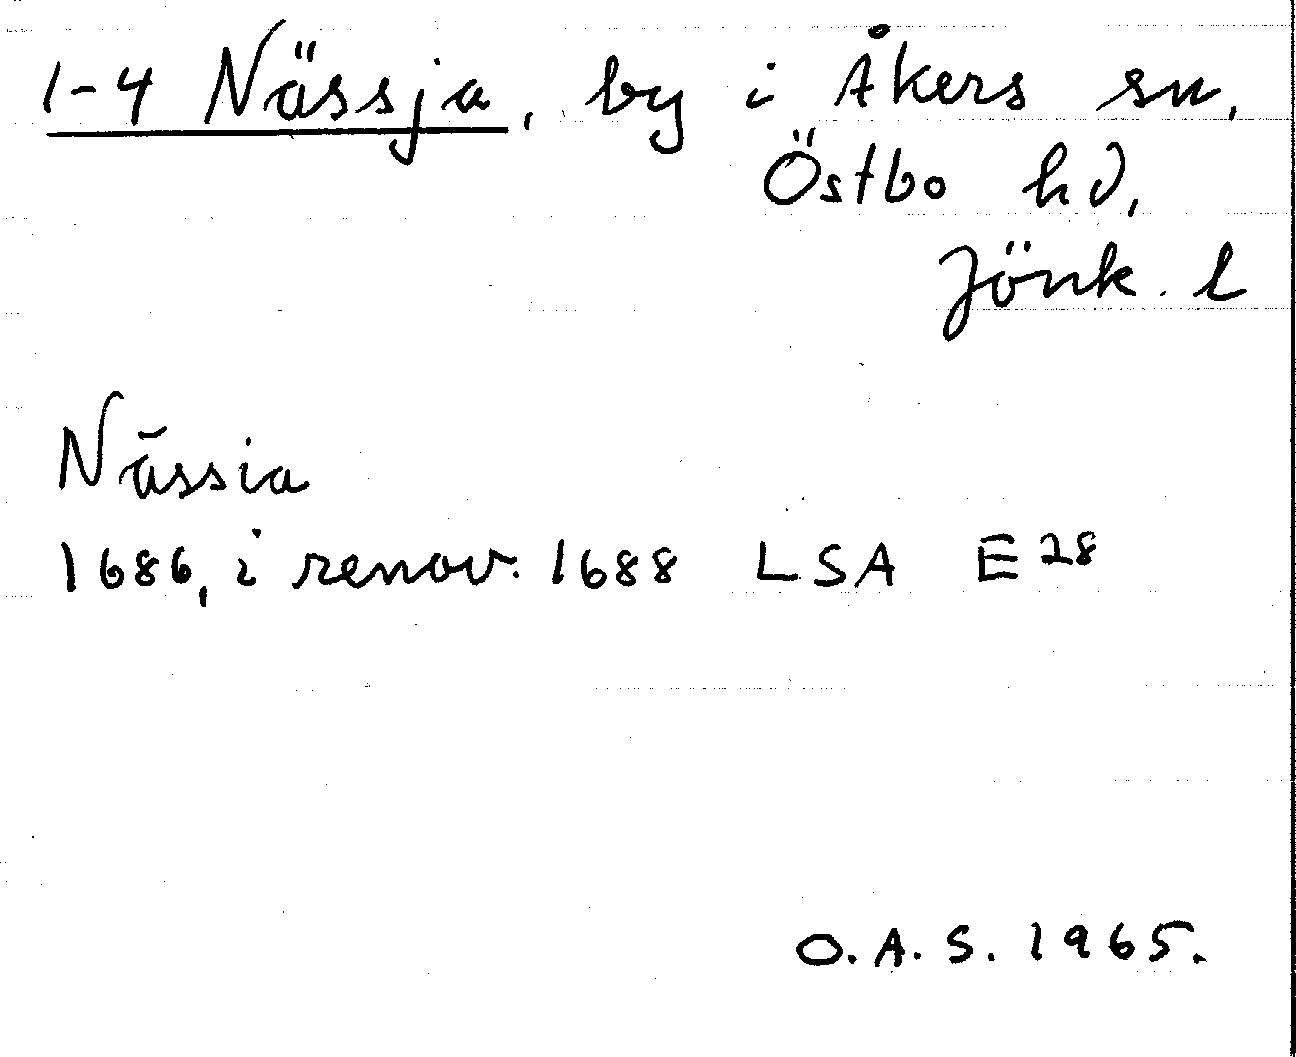 1-4 Nässja, by i Åkers sn,
Östbo hd,
Jönk. l
Nässia
1686, i renov. 1688 LSA E 28
O.A.S. 1965.